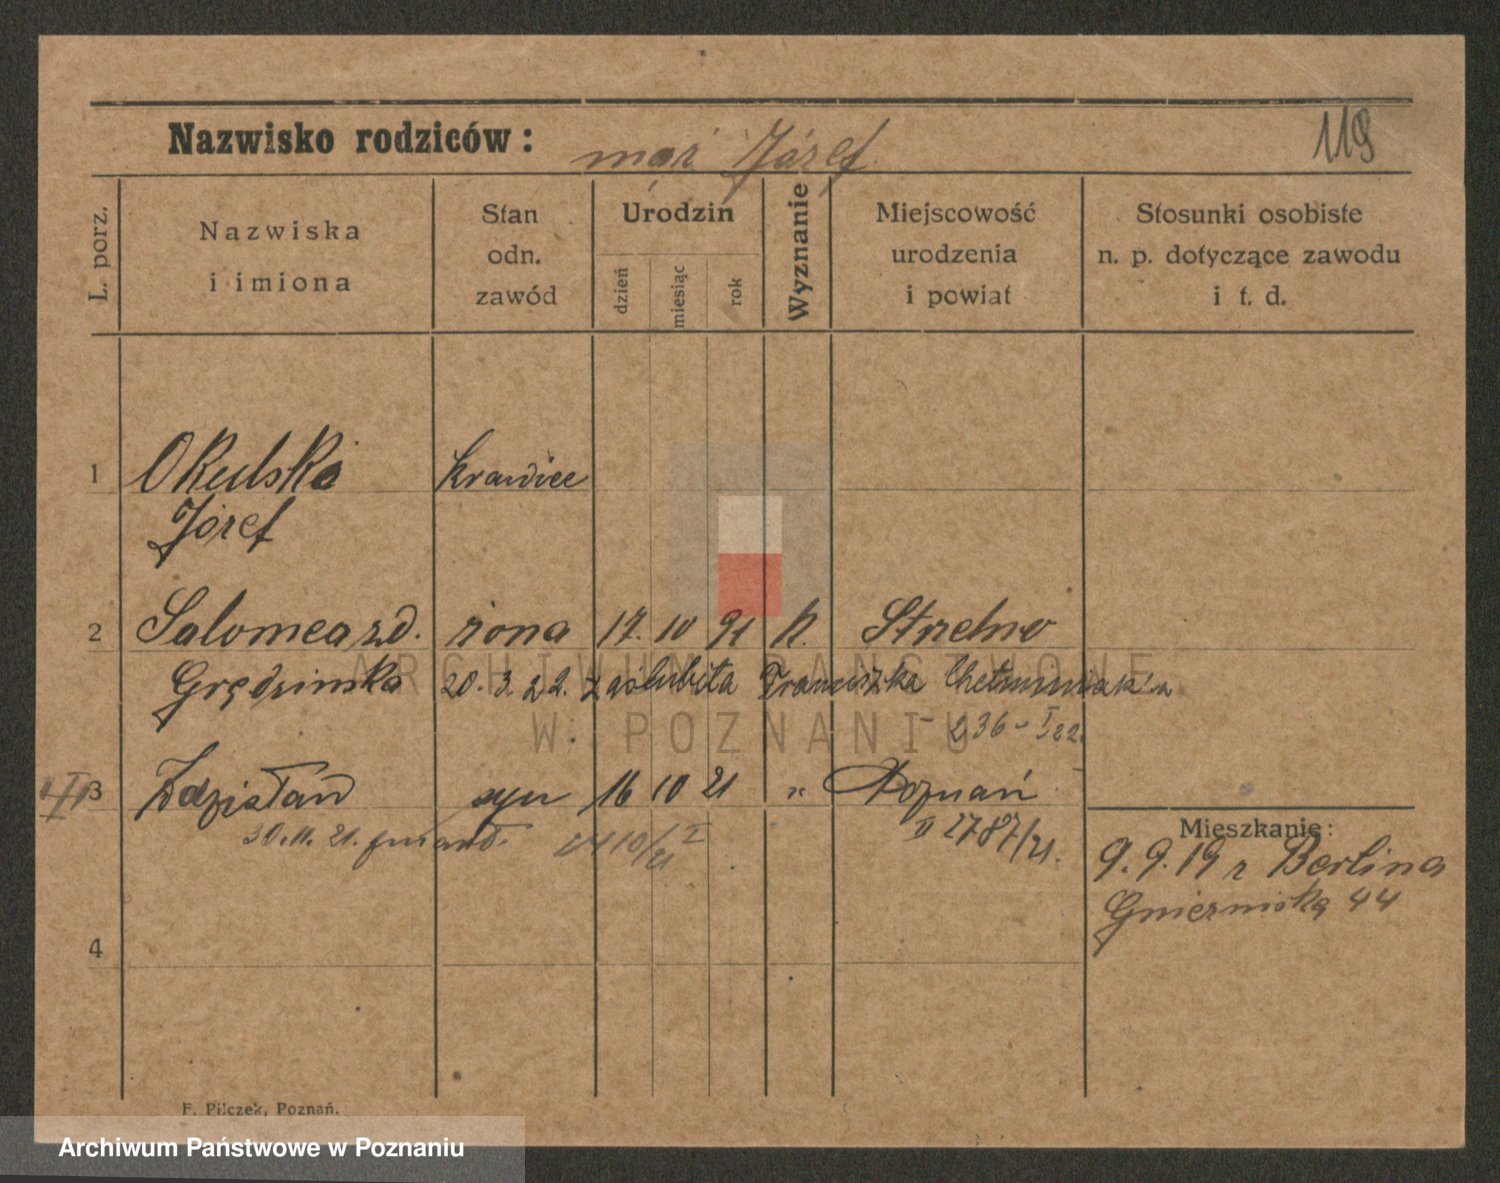 Nazwisko rodziców: mąż Józef
119
L. porz.
Nazwiska i imiona
Stan odn. zawód
Urodzin
dzień
miesiąc
rok
Wyznanie
Miejscowość urodzenia i powiat
Stosunki osobiste n. p. dotyczące zawodu i t. d.
1 Okulska krawiec
Józef
2 Salomea z d. żona 17. 10 91 k. Strzelno
Grędzinska 20. 3. 22. zaślubiła Franciszka
236
3 Zdzisław syn 16 10 21 " Poznań
30. 11. 21. II 2787/21.
Mieszkanie:
9. 9. 19 z Berlina
Gnieznieńska 44
4
F. Pilczek, Poznań.
ARCHIWUM PAŃSTWOWE
W POZNANIU
Archiwum Państwowe w Poznaniu